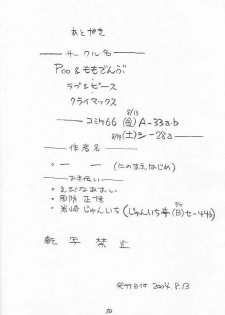 あとがき
サークル名
Poo&ももでんぶ
ラブ&ピース
クライマックス
8/13
コミケ66 (金)A-33a.b
8/14 (土)シ-28a
作者名
一 一 (にのまえはじめ)
お手伝い
・えびなあすい
・周防 正俊
・岩崎じゅんいち(じゅんいち亭(日)セ-44b)
転写禁止
発行日付 2004.8.13
50